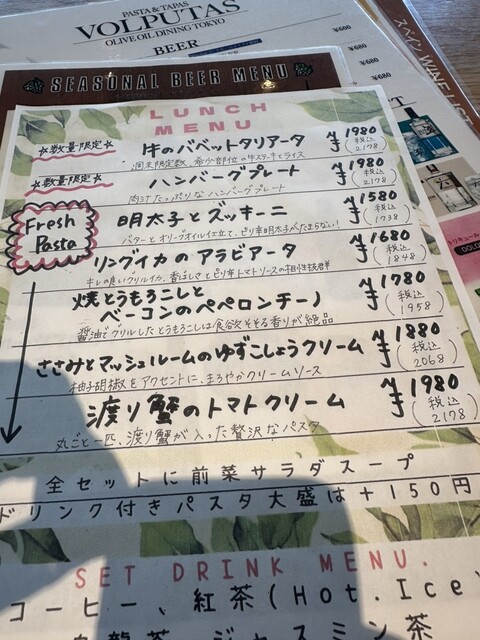 PASTA & TAPAS
VOLPUTAS
OLIVE OIL DINING TOKYO
BEER
¥600
¥680
¥680
¥680
スペイン WINE LIST
SEASONAL BEER MENU
LUNCH
MENU
☆数量限定☆
牛のバベットタリアータ
¥1980
(税込 2178)
週末限定数、希少部位の牛ステーキとライス
☆数量限定☆
ハンバーグプレート
¥1980
(税込 2178)
肉汁たっぷりなハンバーグプレート
Fresh
Pasta
明太子とズッキーニ
¥1580
(税込 1738)
バターとオリーブオイル仕立て、ピリ辛明太子がたまらない!
リングイカのアラビアータ
¥1680
(税込 1848)
キレの良いグリルイカ、香ばしさとピリ辛トマトソースの相性抜群
焼とうもろこしと
ベーコンのペペロンチーノ
¥1780
(税込 1958)
醤油でグリルしたとうもろこしは食欲そそる香りが絶品
ささみとマッシュルームのゆずこしょうクリーム
¥1880
(税込 2068)
柚子胡椒をアクセントに、まろやかクリームソース
渡り蟹のトマトクリーム
¥1980
(税込 2178)
丸ごと一匹、渡り蟹が入った贅沢なパスタ
全セットに前菜サラダスープ
ドリンク付きパスタ大盛は+150円
SET DRINK MENU.
コーヒー、紅茶(Hot.Ice、
烏龍茶、ジャスミン茶